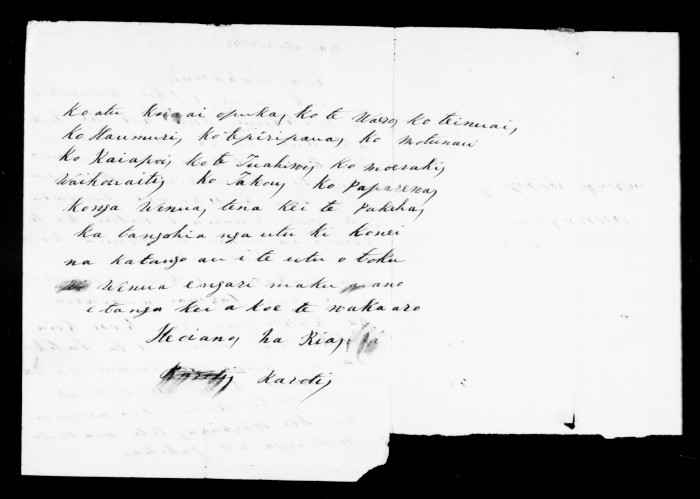 Ko atu koia ai opuka, ko te Waero, ko teinuai,
Ko Haumuri, ko tepiripaua, ko motunau
Ko Kaiapoi, ko te Tuahiwi, ko moeraki,
Waikouaiti, ko Takou, ko paparewa,
Konga Wenua, tena kei te Pakeha,
ka tangohia nga utu ki konei
na katango au i te utu o toku
Wenua engari maku ano
e tanga kei a koe te wakaaro
Heoiano, na Ria,
Karoti,